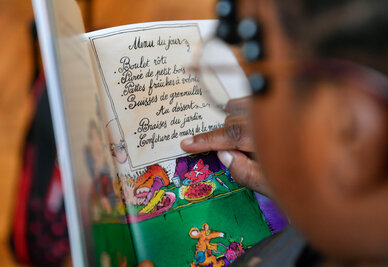 Menu du jour
Poulet rôti
Purée de petit pois
Pattes fraîches à volonté
Cuisses de grenouilles
Au dessert
Fraises du jardin
Confiture de murs de la maison